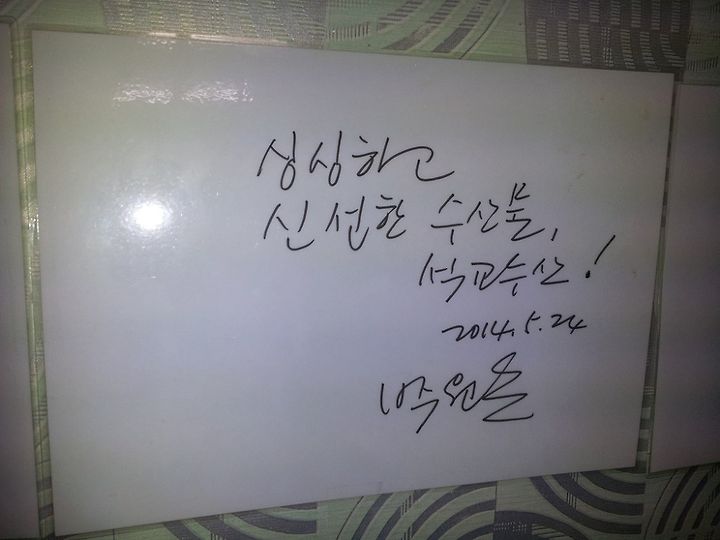 싱싱하고
신선한 수산물,
석교수산!
2014.5.24
박원순